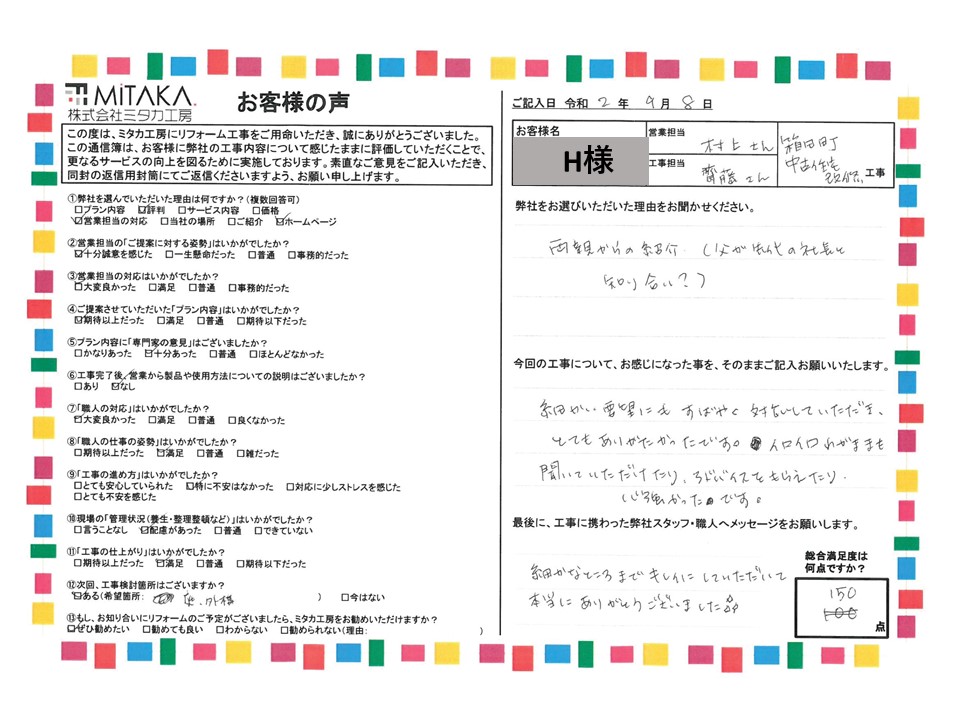 MiTAKA
株式会社ミタカ工房
お客様の声
この度は、ミタカ工房にリフォーム工事をご用命いただき、誠にありがとうございました。
この通信簿は、お客様に弊社の工事内容について感じたままに評価していただくことで、
更なるサービスの向上を図るために実施しております。素直なご意見をご記入いただき、
同封の返信用封筒にてご返信くださいますよう、お願い申し上げます。
①弊社を選んでいただいた理由は何ですか？(複数回答可)
□プラン内容 ☑評判 □サービス内容 □価格
☑営業担当の対応 □当社の場所 □ご紹介 ☑ホームページ
②営業担当の「ご提案に対する姿勢」はいかがでしたか？
☑十分誠意を感じた □一生懸命だった □普通 □事務的だった
③営業担当の対応はいかがでしたか？
☑大変良かった □満足 □普通 □事務的だった
④ご提案させていただいた「プラン内容」はいかがでしたか？
☑期待以上だった □満足 □普通 □期待以下だった
⑤プラン内容に「専門家の意見」はございましたか？
□かなりあった ☑十分あった □普通 □ほとんどなかった
⑥工事完了後、営業から製品や使用方法についての説明はございましたか？
□あり ☑なし
⑦「職人の対応」はいかがでしたか？
☑大変良かった □満足 □普通 □良くなかった
⑧「職人の仕事の姿勢」はいかがでしたか？
□期待以上だった ☑満足 □普通 □雑だった
⑨「工事の進め方」はいかがでしたか？
□とても安心していられた ☑特に不安はなかった □対応に少しストレスを感じた
□とても不安を感じた
⑩現場の「管理状況(養生・整理整頓など)」はいかがでしたか？
□言うことなし ☑配慮があった □普通 □できていない
⑪「工事の仕上がり」はいかがでしたか？
□期待以上だった ☑満足 □普通 □期待以下だった
⑫次回、工事検討箇所はございますか？
☑ある(希望箇所: 庭、外構 ) □今はない
⑬もし、お知り合いにリフォームのご予定がございましたら、ミタカ工房をお勧めいただけますか？
☑ぜひ勧めたい □勧めても良い □わからない □勧められない(理由: )
ご記入日 令和 2 年 9月 8 日
お客様名
H様
営業担当
村上さん
工事担当
齊藤さん
箱田町
中古住宅
改修 工事
弊社をお選びいただいた理由をお聞かせください。
両親からの紹介. (父が先代の社長と
知り合い？)
今回の工事について、お感じになった事を、そのままご記入お願いいたします。
細かい要望にもすばやく対応していただき、
とてもありがたかったです。イロイロわがままも
聞いていただけたり、アドバイスをもらえたり.
心強かったです。
最後に、工事に携わった弊社スタッフ・職人へメッセージをお願します。
細かなところまでキレイにしていただいて
本当にありがとうございました
総合満足度は
何点ですか？
150
100
点